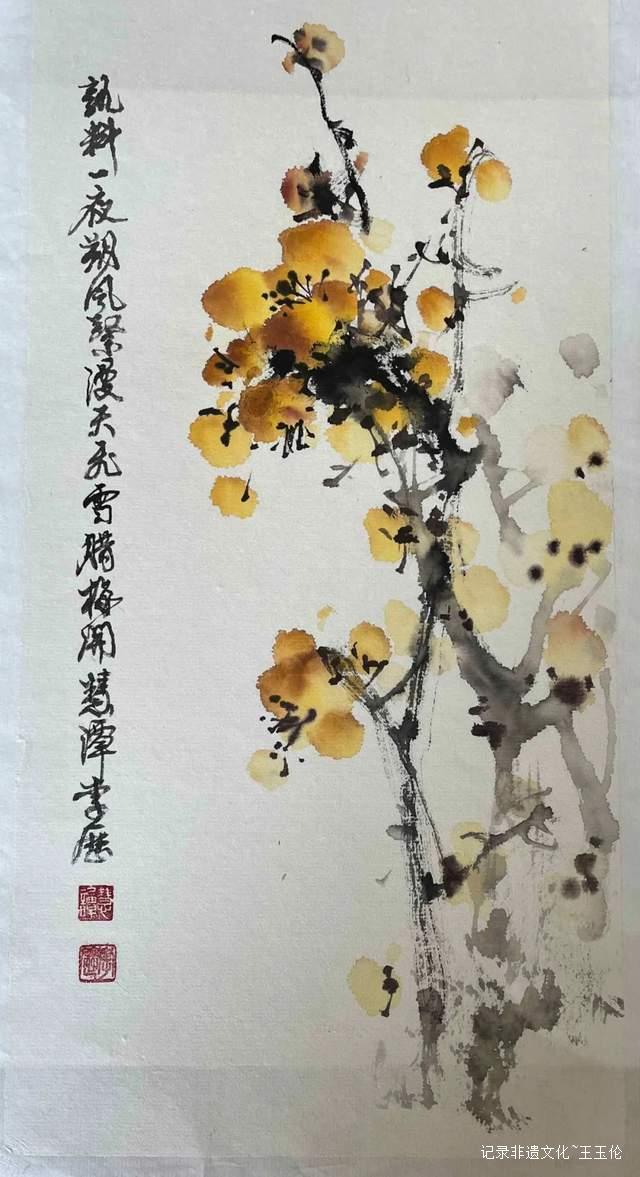 孰料一夜朔风紧漫天飞雪腊梅开慧潭李历
记录非遗文化~王玉伦